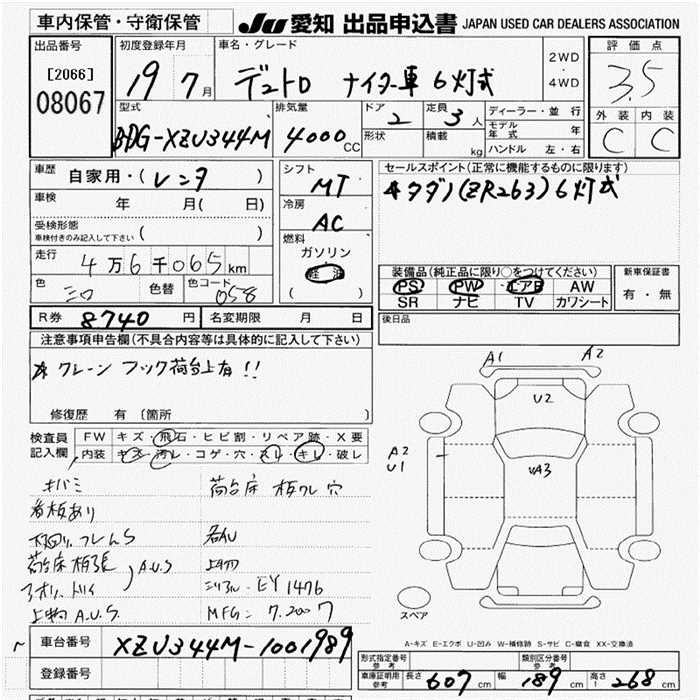 車内保管・守衛保管 JU 愛知 出品申込書 JAPAN USED CAR DEALERS ASSOCIATION
出品番号 初度登録年月 車名・グレード 2WD・4WD 評価点
[2066] 19 7月 デュトロ ナイター車 6灯式 3.5
08067
型式 排気量 ドア 定員 ディーラー・並行 外装 内装
BDG-XZU344M 4000cc 2 3人 モデル年式 年 C C
形状 積載 kg ハンドル 左・右
車歴 自家用・(レンタ) シフト MT セールスポイント(正常に機能するものに限ります)
車検 年 月(日) 冷房 AC タダノ(ZR263)6灯式
受検形態 車検付きのみ記入して下さい ( ) 燃料 ガソリン
走行 4万6千065km 軽油 装備品(純正品に限り○をつけてください) 新車保証書
色 シロ 色替 色コード 058 ( ) PS PW エアB AW 有・無
SR ナビ TV カワシート
R券 8740円 名変期限 月 日 後日品
注意事項申告欄(不具合内容等は具体的に記入して下さい)
クレーン フック荷台上有!!
修復歴 有 〔箇所
A1 A2
U2
A2 U1
UA3
検査員記入欄 FW キズ・飛石・ヒビ割・リペア跡・X要
内装 キズ・汚レ・コゲ・穴・スレ・キレ・破レ
キバミ 荷台床 板ワレ 穴
看板あり
下回り、フレームS 各AU
荷台床板張 A.U.S 上物
アオリ、トリイ シリアル:EY1476
上物A.U.S. MFG:7.2007
スペア
A-キズ E-エクボ U-凹み W-補修跡 S-サビ C-腐食 XX-交換済
車台番号 XZU344M-1001989
登録番号
形式指定番号 参考 類別区分番号 参考
車庫証明用 参考 長さ 607cm 幅 189cm 高さ 268cm